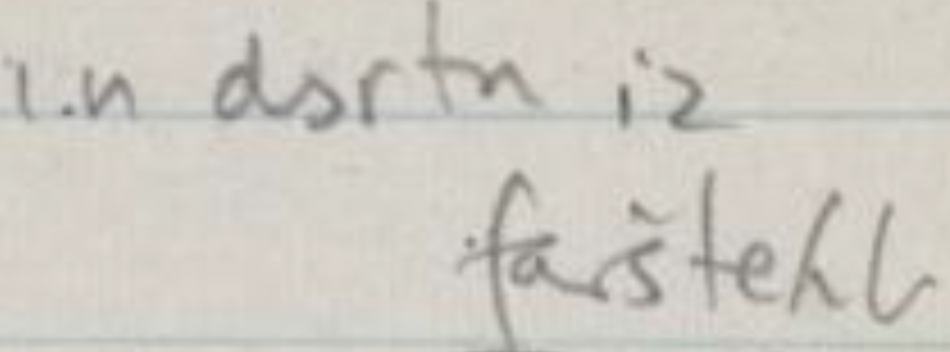 i.n dortn iz
farštehl